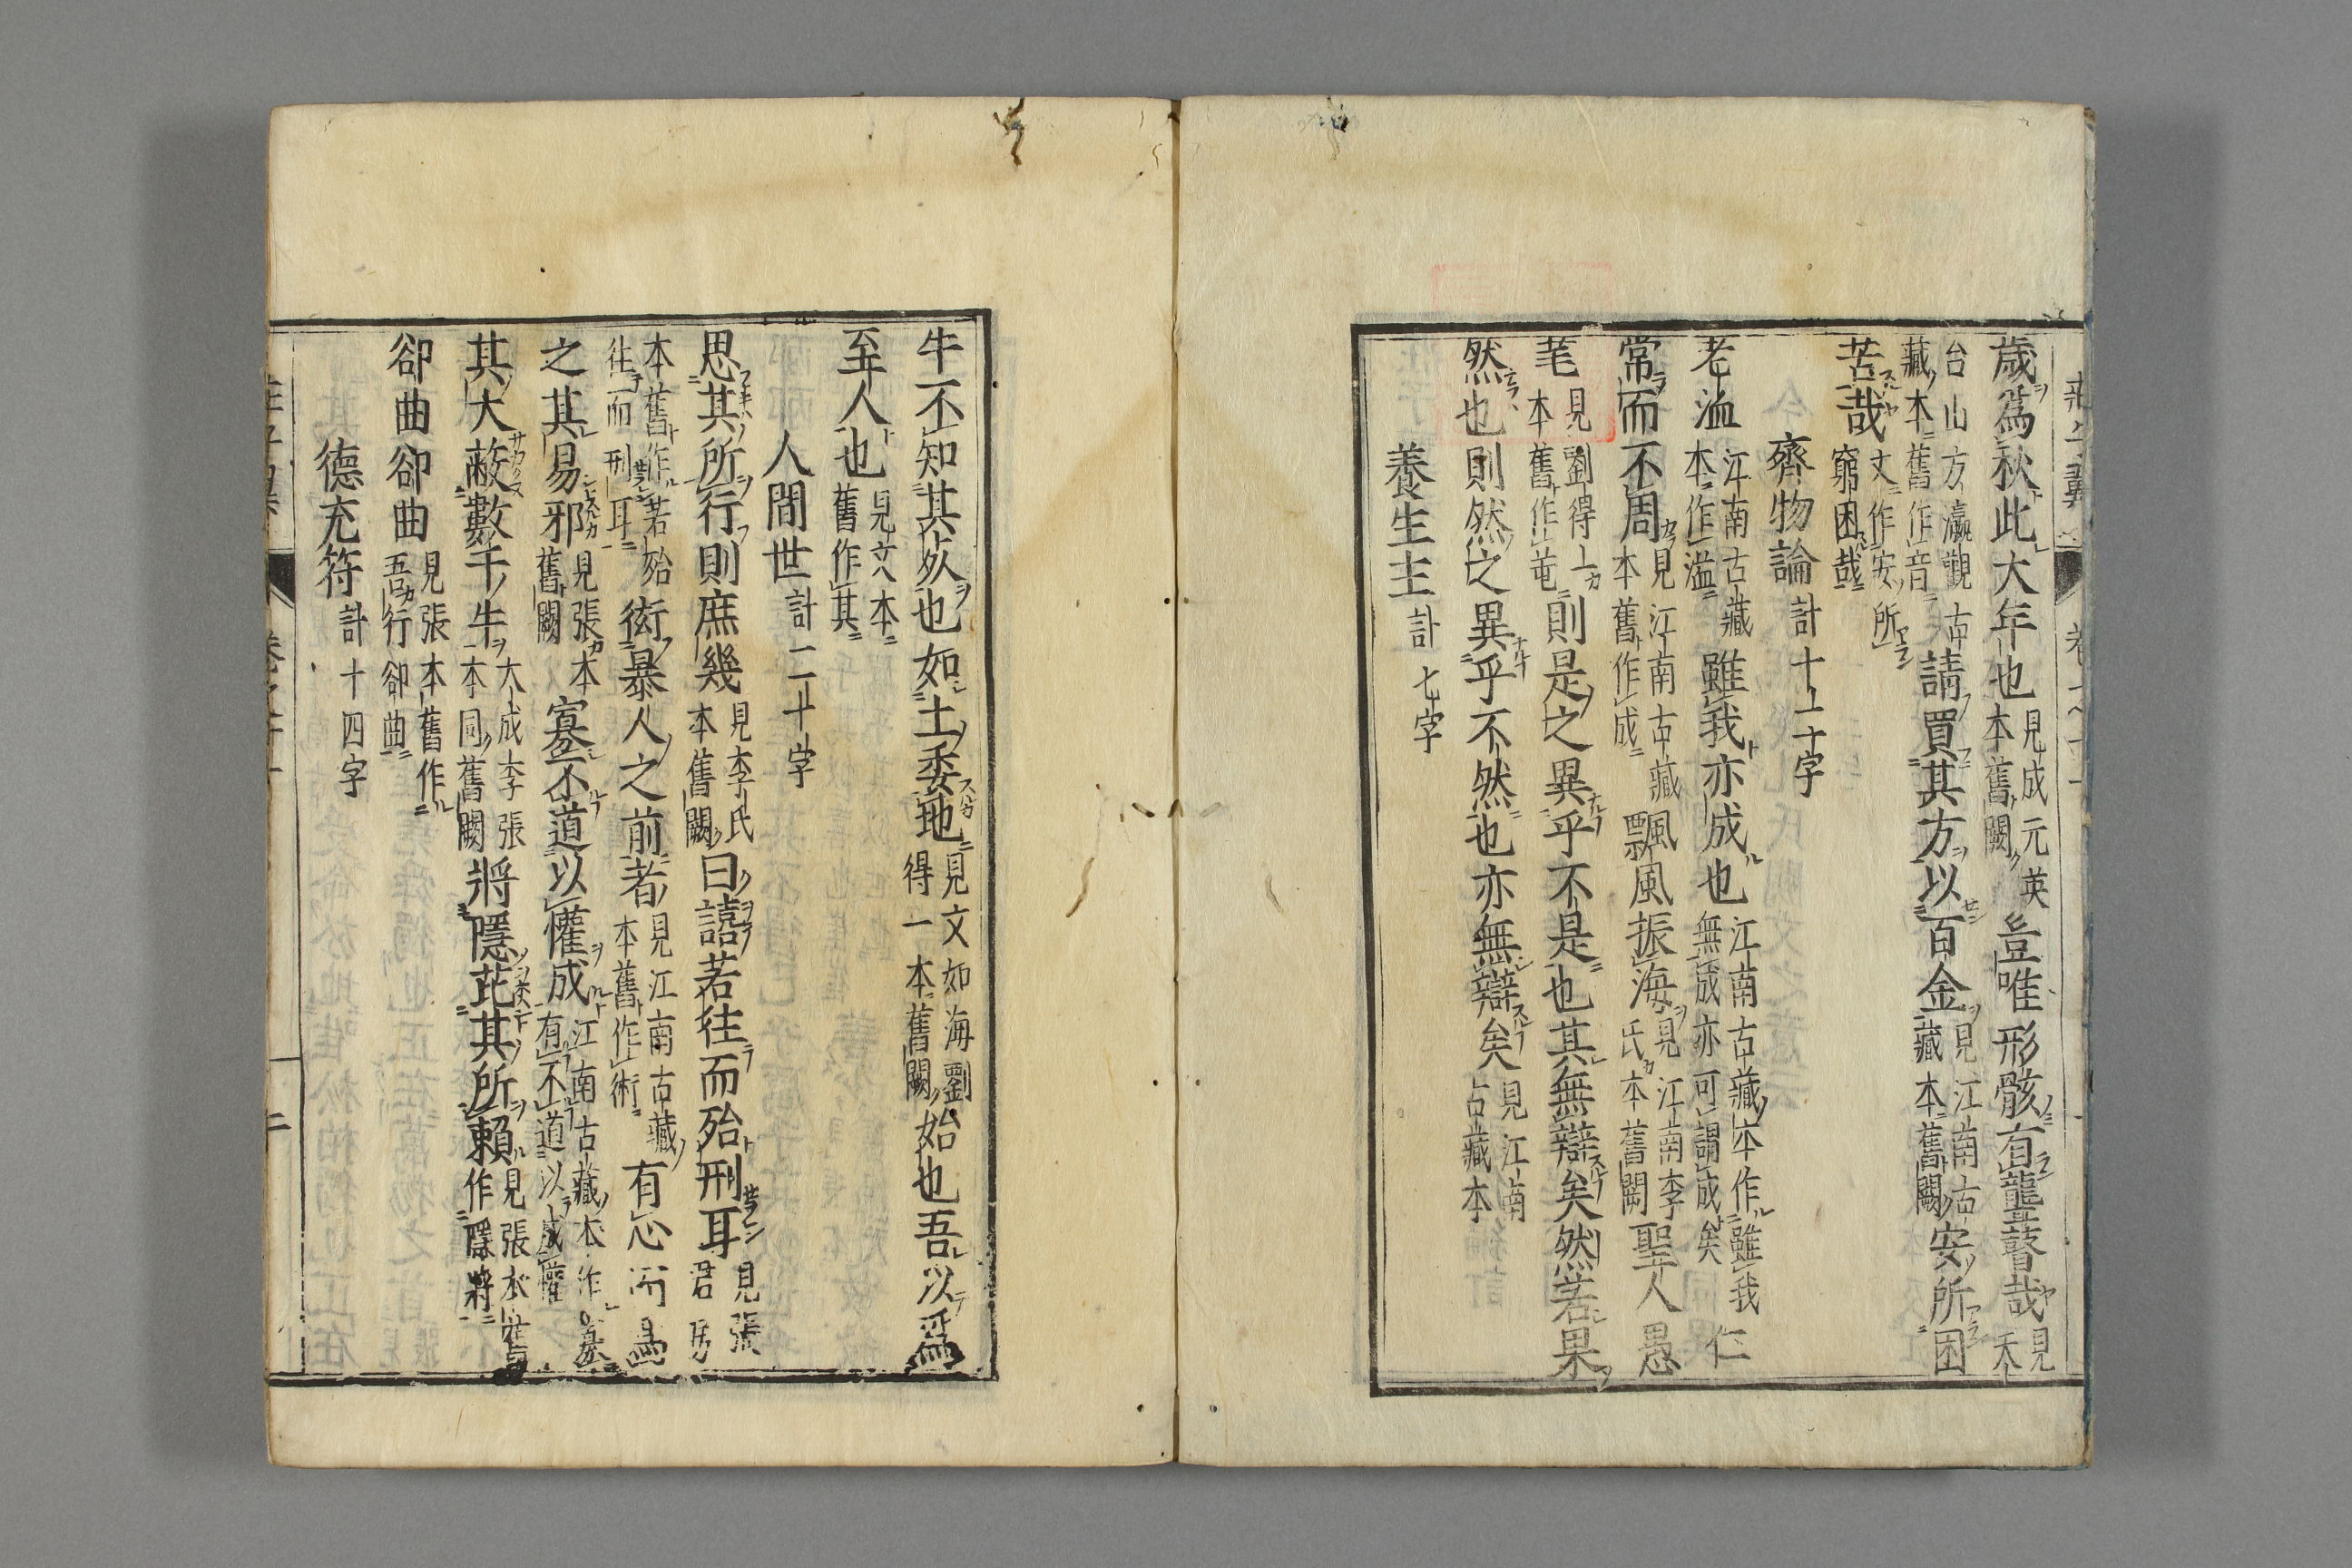 歲爲秋此大年也見成元英本舊闕豈唯形骸有聾瞽哉見天
台山方瀛觀古藏本舊作音請買其方以百金見江南古藏本舊闕安所困
苦哉文作安所窮困哉
齊物論計十二十字
老洫江南古藏本作溢雖我亦成也江南古藏本作雖我無成亦可謂成矣仁
常而不周見江南古藏本舊作成飄風振海見江南李氏本舊闕聖人愚
芚見劉得一本舊作芚則是之異乎不是也其無辯矣然若果
然也則然之異乎不然也亦無辯矣見江南古藏本
養生主計七字
牛不知其死也如土委地見文如海劉得一本舊闕始也吾以爲
至人也見文本舊作其
人間世計二十字
思其所行則庶幾見李氏本舊闕曰譆若往而殆刑耳見張君房
本舊作若殆往而刑耳衒暴人之前者見江南古藏本舊作術有心而爲
之其易邪見張本舊闕寡不道以懽成江南古藏本作寡有不道以成懽
其大蔽數千牛大成李張本同舊闕將隱芘其所賴見張本舊作隱將
卻曲卻曲見張本舊作吾行卻曲
德充符計十四字